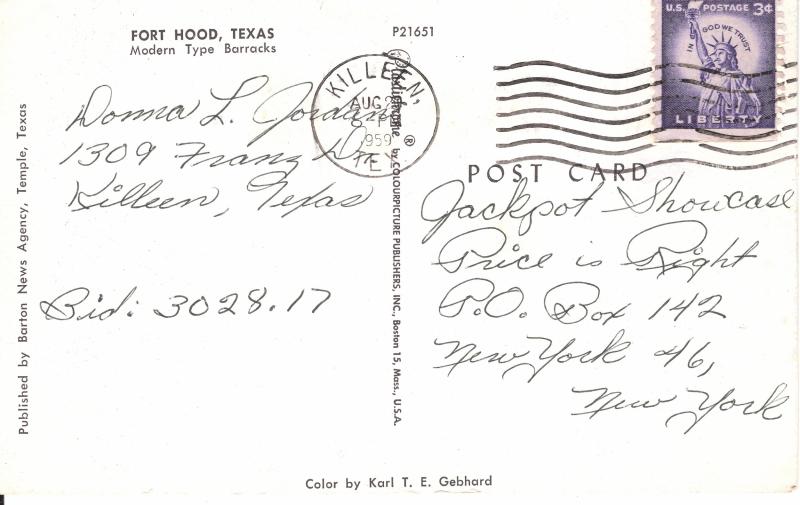 FORT HOOD, TEXAS
Modern Type Barracks
P21651
U.S. POSTAGE 3¢
IN GOD WE TRUST
LIBERTY
KILLEEN,
AUG
1959
TEX
Donna L. Jordan
1309 Franz Dr.
Killeen, Texas
Bid: 3028.17
Published by Barton News Agency, Temple, Texas
Plastichrome ® by COLOURPICTURE PUBLISHERS, INC., Boston 15, Mass., U.S.A.
POST CARD
Jackpot Showcase
Price is Right
P.O. Box 142
New York 46,
New York
Color by Karl T. E. Gebhard